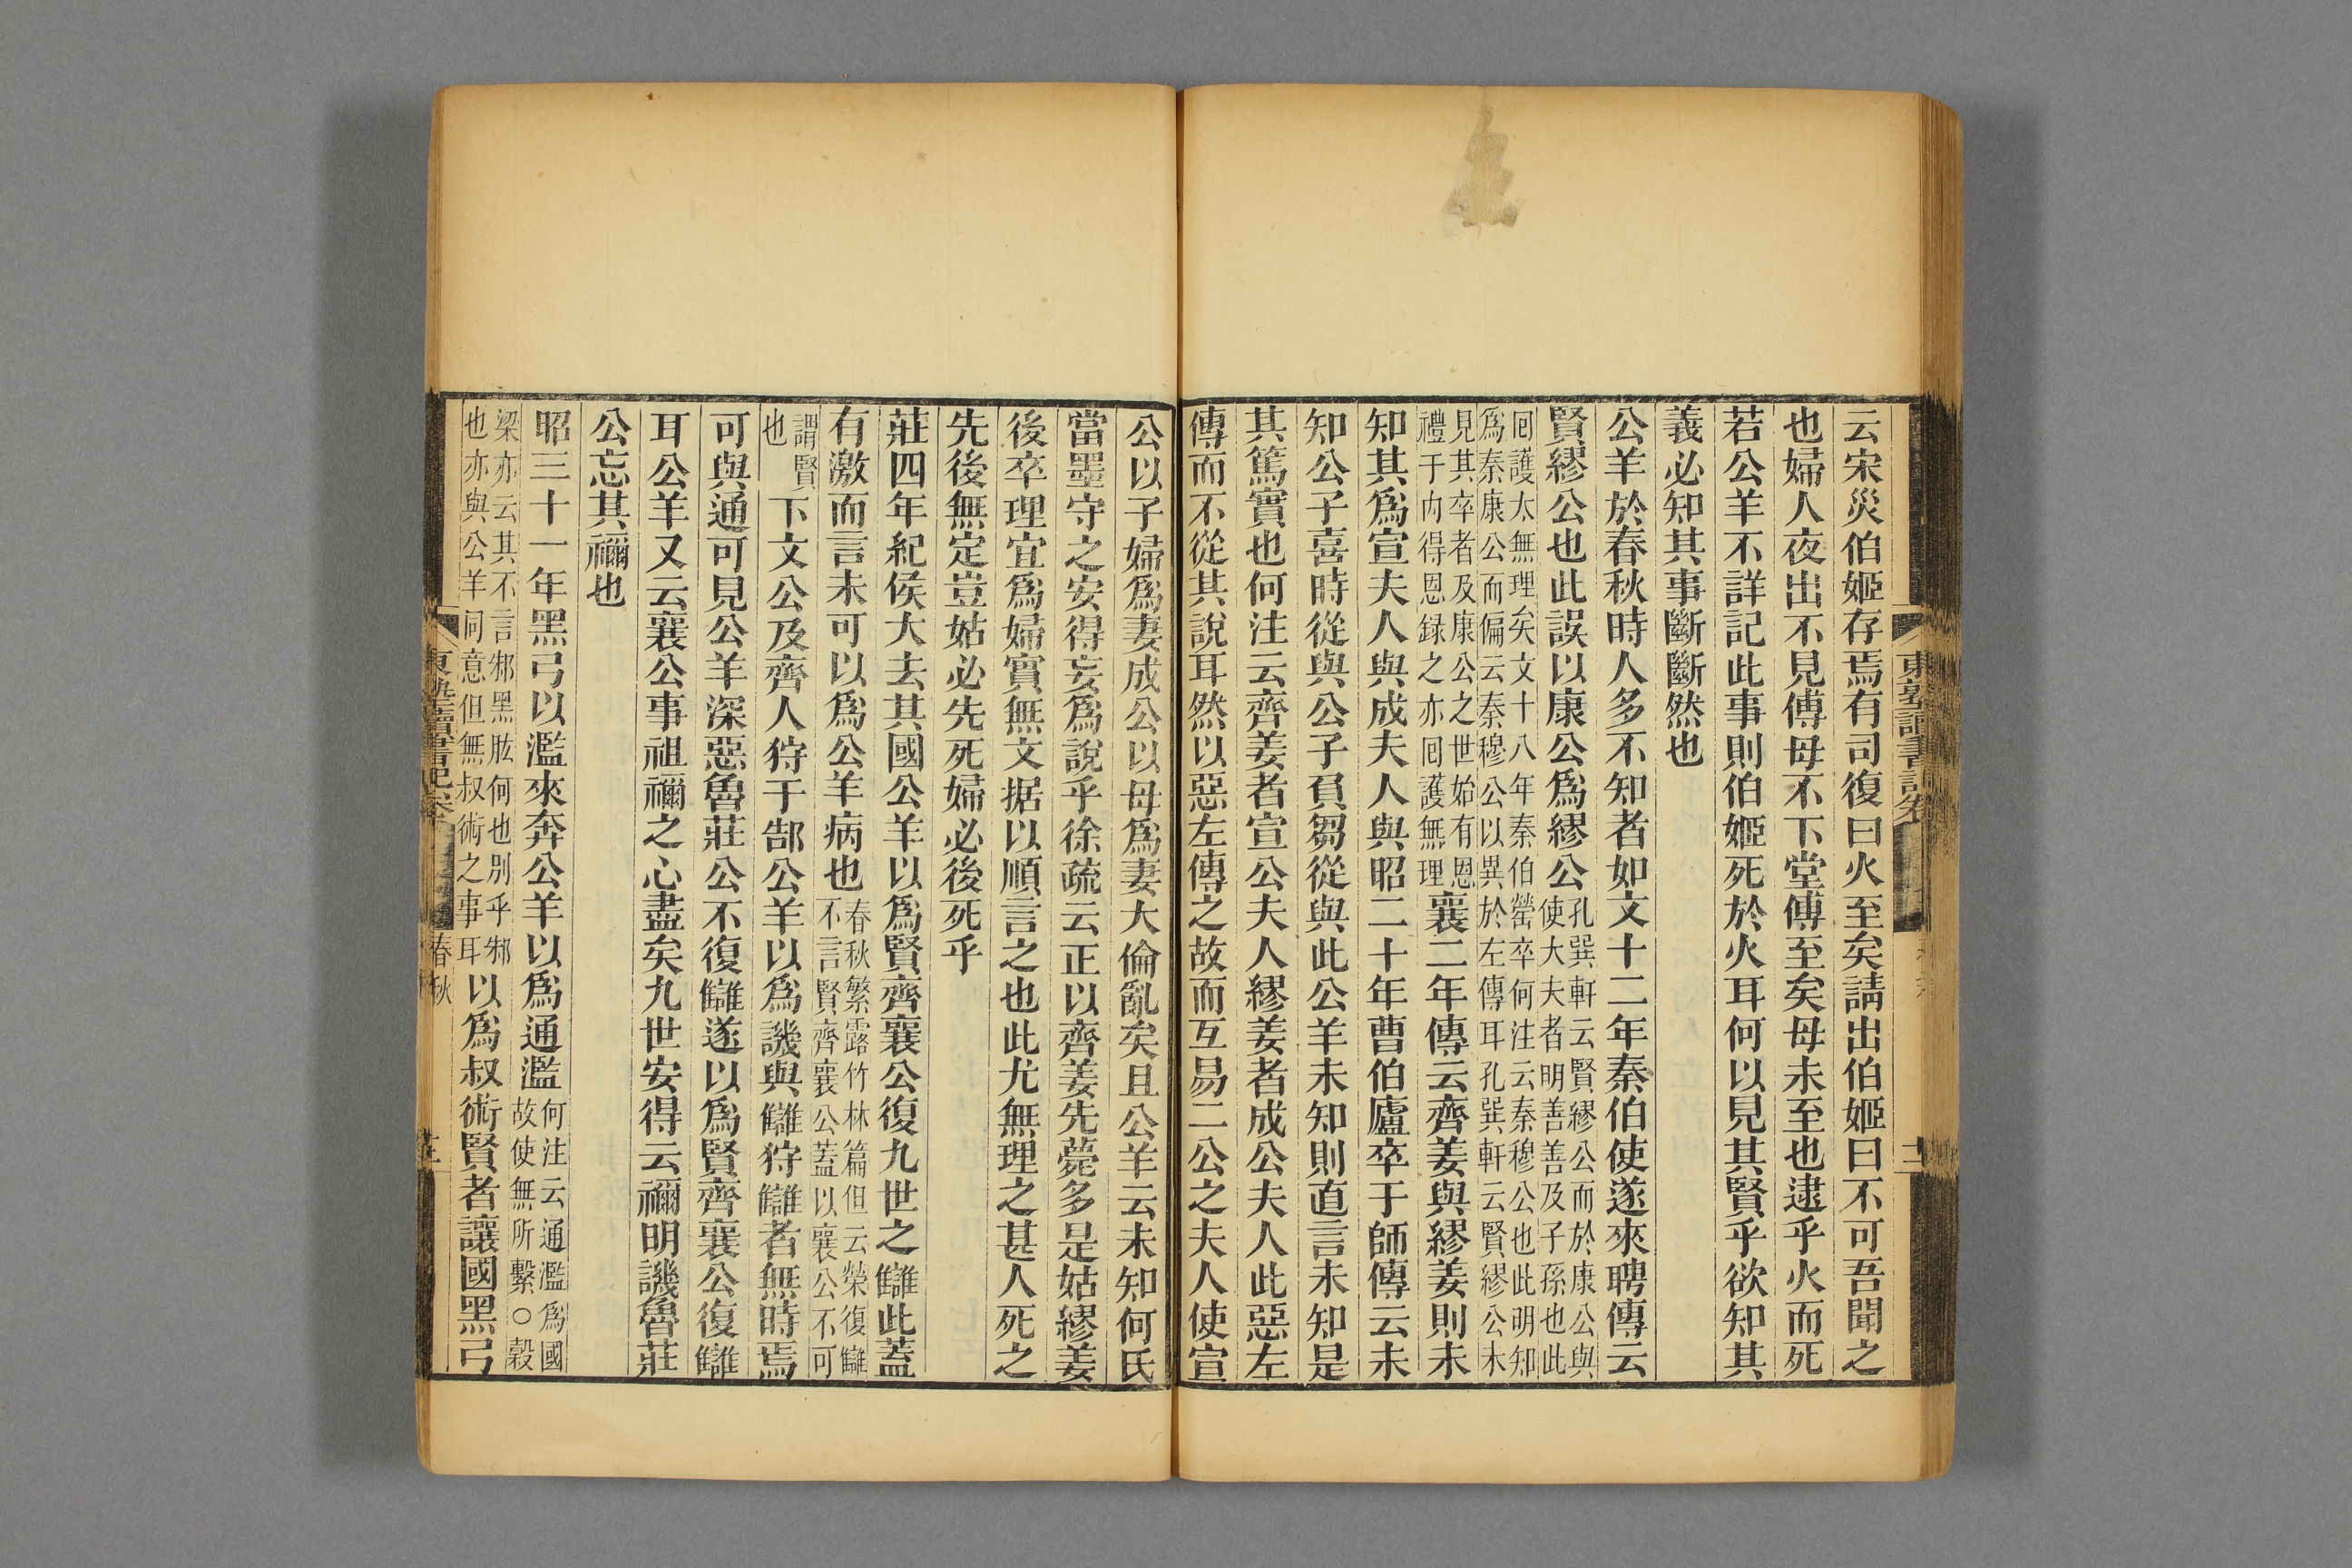 云宋災伯姬存焉有司復曰火至矣請出伯姬曰不可吾聞之
也婦人夜出不見傅母不下堂傅至矣母未至也逮乎火而死
若公羊不詳記此事則伯姬死於火耳何以見其賢乎欲知其
義必知其事斷斷然也
公羊於春秋時人多不知者如文十二年秦伯使遂來聘傳云
賢繆公也此誤以康公爲繆公
孔巽軒云賢繆公而於康公與
使大夫者明善善及子孫也此
回護太無理矣文十八年秦伯罃卒何注云秦穆公也此明知
爲秦康公而偏云秦穆公以異於左傳耳孔巽軒云賢繆公未
見其卒者及康公之世始有恩
禮于内得恩録之亦回護無理
襄二年傳云齊姜與繆姜則未
知其爲宣夫人與成夫人與昭二十年曹伯廬卒于師傳云未
知公子喜時從與公子負芻從與此公羊未知則直言未知是
其篤實也何注云齊姜者宣公夫人繆姜者成公夫人此惡左
傳而不從其說耳然以惡左傳之故而互易二公之夫人使宣
公以子婦爲妻成公以母爲妻大倫亂矣且公羊云未知何氏
當墨守之安得妄爲說乎徐疏云正以齊姜先薨多是姑繆姜
後卒理宜爲婦實無文据以順言之也此尤無理之甚人死之
先後無定豈姑必先死婦必後死乎
莊四年紀侯大去其國公羊以爲賢齊襄公復九世之讎此蓋
有激而言未可以爲公羊病也
春秋繁露竹林篇但云榮復讎
不言賢齊襄公蓋以襄公不可
謂賢
也
下文公及齊人狩于郜公羊以爲譏與讎狩讎者無時焉
可與通可見公羊深惡魯莊公不復讎遂以爲賢齊襄公復讎
耳公羊又云襄公事祖禰之心盡矣九世安得云禰明譏魯莊
公忘其禰也
昭三十一年黑弓以濫來奔公羊以爲通濫
何注云通濫爲國
故使無所繫○穀
梁亦云其不言邾黑肱何也別乎邾
也亦與公羊同意但無叔術之事耳
以爲叔術賢者讓國黑弓
東塾讀書記卷
春秋